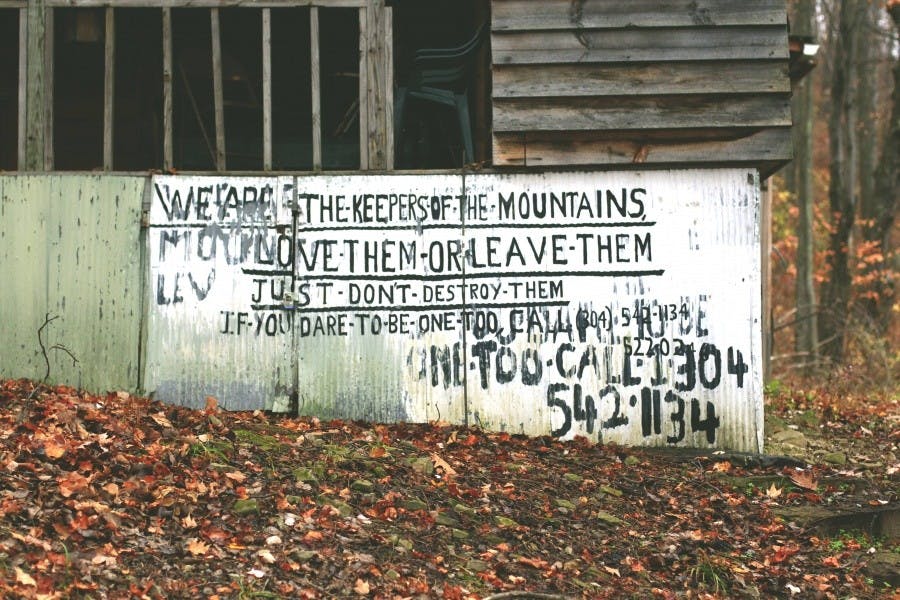 WE·ARE·THE·KEEPERS·OF·THE·MOUNTAINS
LOVE·THEM·OR·LEAVE·THEM
JUST·DON'T·DESTROY·THEM
IF·YOU·DARE·TO·BE·ONE·TOO,CALL(304) 542-1134
ONE·TOO·CALL·1304
542·1134